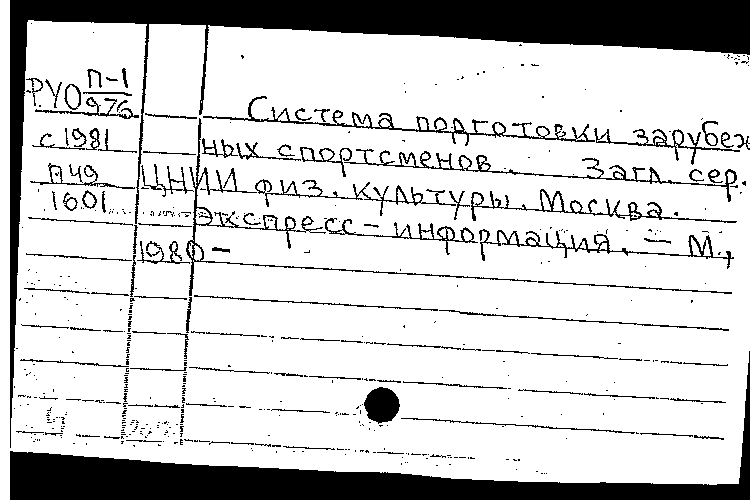 РУО П-1
976
с 1981
П49
1601
Система подготовки зарубеж
ных спортсменов. Загл. сер.
ЦНИИ физ. культуры. Москва.
Экспресс-информация. — М.,
1980-